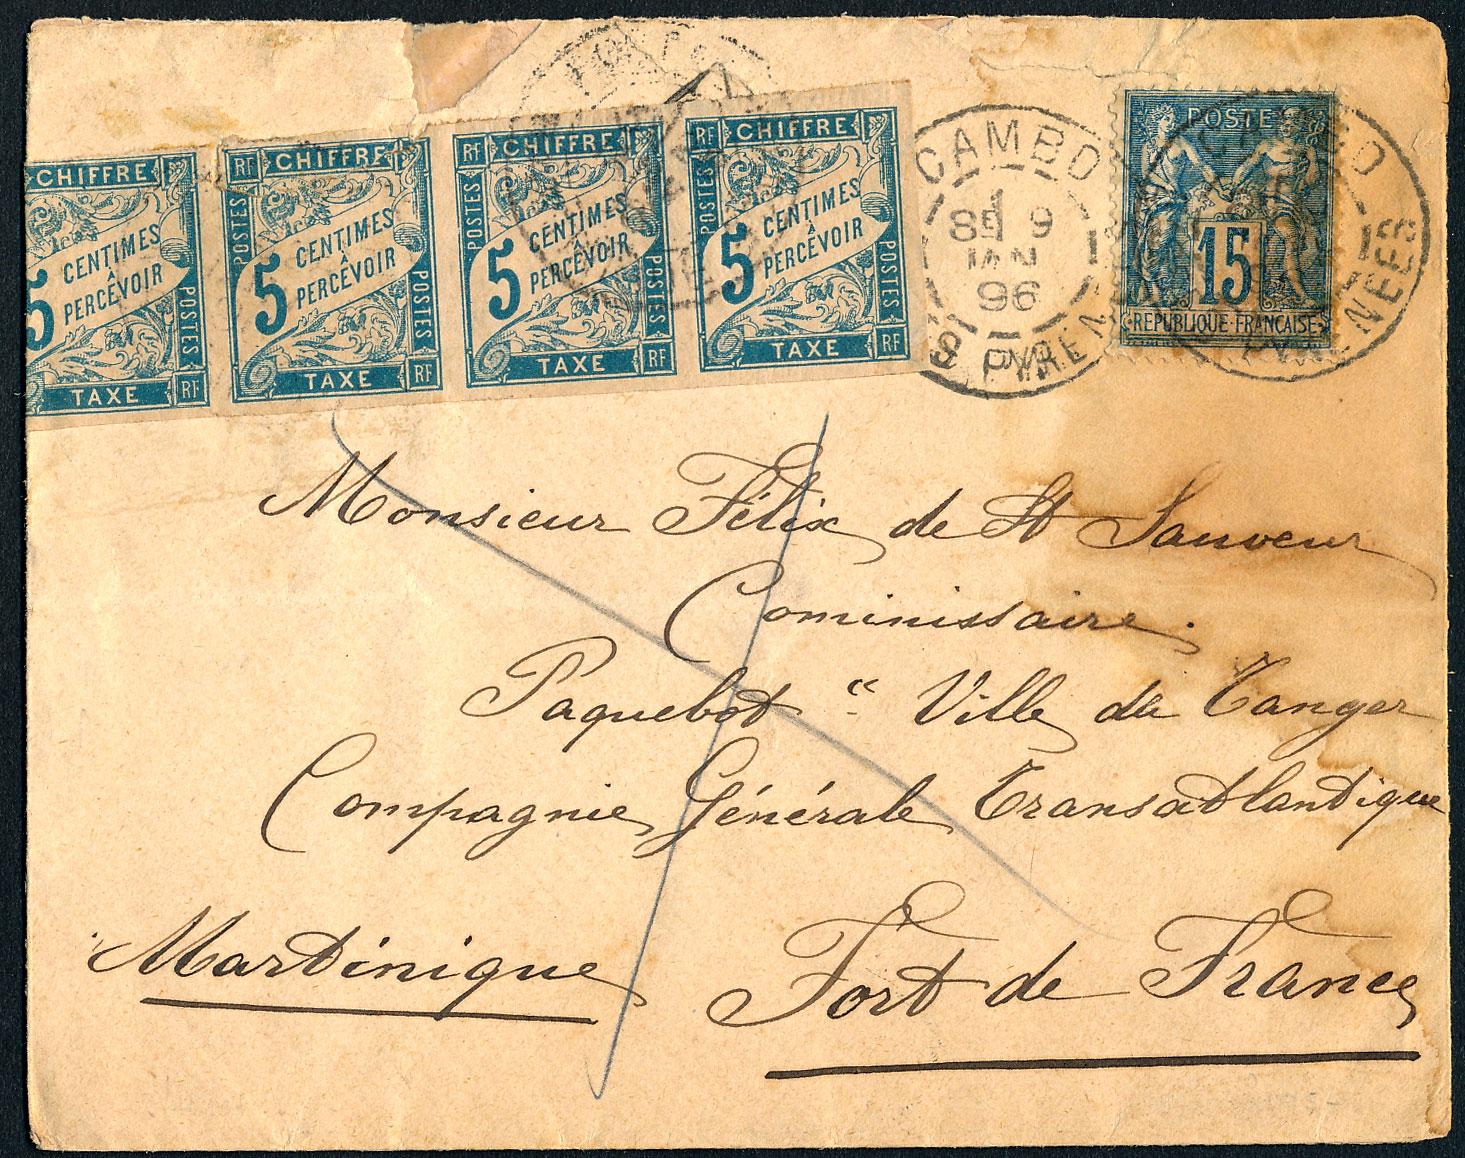 CHIFFRE
5 CENTIMES
À
PERCEVOIR
POSTES
TAXE
RF
RF CHIFFRE
POSTES
5 CENTIMES
À
PERCEVOIR
POSTES
TAXE
RF
RF CHIFFRE
POSTES
5 CENTIMES
À
PERCEVOIR
POSTES
TAXE
RF
RF CHIFFRE
POSTES
5 CENTIMES
À
PERCEVOIR
POSTES
TAXE
RF
CAMBO
9
96
PYRENEES
POSTE
15
REPUBLIQUE FRANCAISE
CAMBO
PYRENEES
Monsieur Félix de St Sauveur
Commissaire.
Paquebot " Ville de Tanger
Compagnie Générale Transatlantique
Martinique
Fort de France